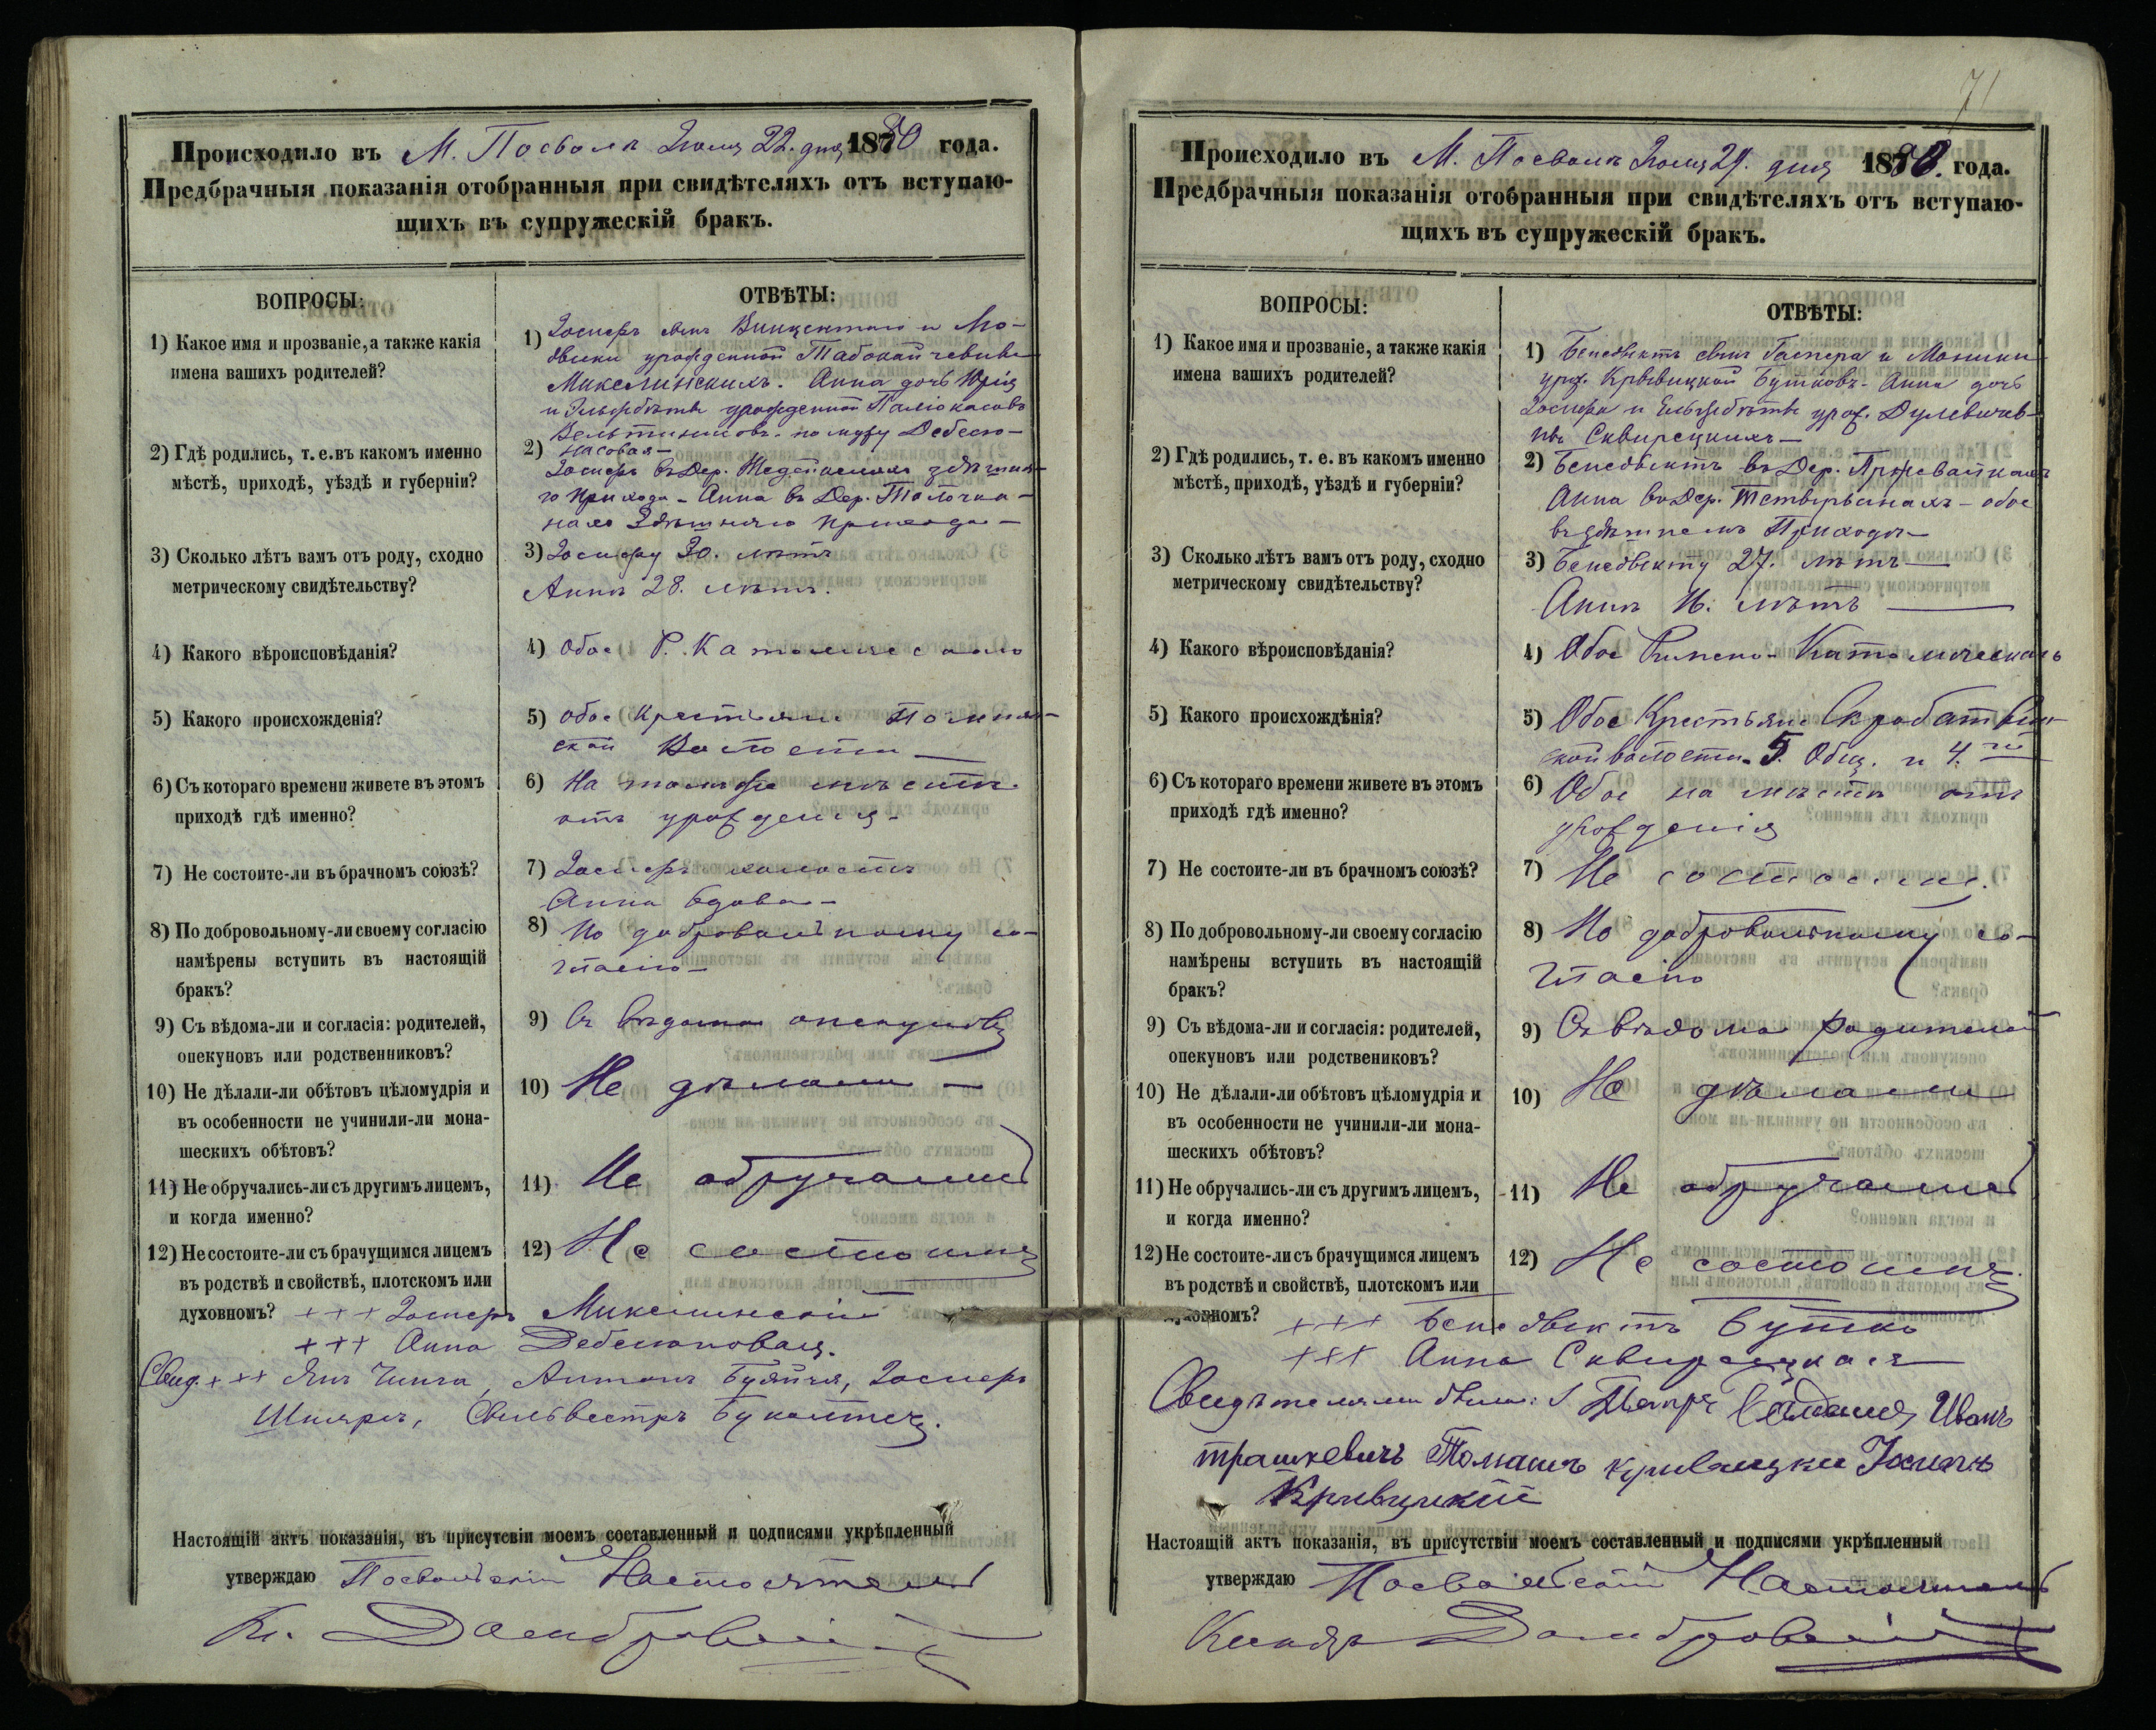 Происходило въ М. Посволъ Іюля 22. дня 1880 года.
Предбрачныя показанія отобранныя при свидѣтеляхъ отъ вступаю-
щихъ въ супружескій бракъ.
ВОПРОСЫ:
ОТВѢТЫ:
1) Какое имя и прозваніе, а также какія
имена вашихъ родителей?
1) Іосифъ сынъ Винцентаго и Лю-
двики урожденной
Микелинскихъ. Анна дочь Юрія
и Эльжбѣты урожденной Палюкасовъ
по мужу Дебесю-
насовая
2) Гдѣ родились, т. е. въ какомъ именно
мѣстѣ, приходѣ, уѣздѣ и губерніи?
2) Іосифъ въ Дер. здѣшня-
го прихода - Анна въ Дер.
здѣшняго прихода
3) Сколько лѣтъ вамъ отъ роду, сходно
метрическому свидѣтельству?
3) Іосифу 30. лѣтъ
Аннѣ 28. лѣтъ.
4) Какого вѣроисповѣданія?
4) Обое Р. Католическаго
5) Какого происхожденія?
5) Обое Крестьяне
ской Волости
6) Съ котораго времени живете въ этомъ
приходѣ гдѣ именно?
6) На томъ же мѣстѣ
отъ урожденія
7) Не состоите-ли въ брачномъ союзѣ?
7) Іосифъ холостъ
Анна вдова
8) По добровольному-ли своему согласію
намѣрены вступить въ настоящій
бракъ?
8) По добровольному со-
гласію
9) Съ вѣдома-ли и согласія: родителей,
опекуновъ или родственниковъ?
9) Съ вѣдома опекуновъ
10) Не дѣлали-ли обѣтовъ цѣломудрія и
въ особенности не учинили-ли мона-
шескихъ обѣтовъ?
10) Не дѣлали
11) Не обручались-ли съ другимъ лицемъ,
и когда именно?
11) Не обручались
12) Не состоите-ли съ брачущимся лицемъ
въ родствѣ и свойствѣ, плотскомъ или
духовномъ?
12) Не состоимъ
+++ Іосифъ Микелинскій
+++ Анна Дебесюновая.
Свид. +++ Янъ Чинга, Антонъ Іосифъ
Шкяръ, Сильвестръ
Настоящій актъ показанія, въ присутсвіи моемъ составленный и подписями укрѣпленный
утверждаю Посвольскій Настоятель
Кс. Домбровскій
71
Происходило въ М. Посволъ Іюля 29. дня 1880. года.
Предбрачныя показанія отобранныя при свидѣтеляхъ отъ вступаю-
щихъ въ супружескій бракъ.
ВОПРОСЫ:
ОТВѢТЫ:
1) Какое имя и прозваніе, а также какія
имена вашихъ родителей?
1) Бенедыктъ сынъ Гаспера и Моники
урож. Крывицкой Бутковъ - Анна дочь
Іосифа и Ельжбѣты урож. Дулевичев-
нѣ Сквирецкихъ
2) Гдѣ родились, т. е. въ какомъ именно
мѣстѣ, приходѣ, уѣздѣ и губерніи?
2) Бенедыктъ въ Дер.
Анна въ Дер. - обое
въ здѣшнемъ Приходѣ
3) Сколько лѣтъ вамъ отъ роду, сходно
метрическому свидѣтельству?
3) Бенедыкту 27. лѣтъ
Аннѣ лѣтъ
4) Какого вѣроисповѣданія?
4) Обое Римско-Католическаго
5) Какого происхождѣнія?
5) Обое Крестьяне
ской волости. 5. Общ. и 4. го
6) Съ котораго времени живете въ этомъ
приходѣ гдѣ именно?
6) Обое на мѣстѣ отъ
урожденія
7) Не состоите-ли въ брачномъ союзѣ?
7) Не состоимъ.
8) По добровольному-ли своему согласію
намѣрены вступить въ настоящій
бракъ?
8) По добровольному со-
гласію
9) Съ вѣдома-ли и согласія: родителей,
опекуновъ или родствениковъ?
9) Съ вѣдома родителей
10) Не дѣлали-ли обѣтовъ цѣломудрія и
въ особенности не учинили-ли мона-
шескихъ обѣтовъ?
10) Не дѣлали
11) Не обручались-ли съ другимъ лицемъ,
и когда именно?
11) Не обручались
12) Не состоите-ли съ брачущимся лицемъ
въ родствѣ и свойствѣ, плотскомъ или
духовномъ?
12) Не состоимъ.
+++ Бенедыктъ Бутко
+++ Анна Сквирецкая
Свидѣтелями были: Иванъ
трашкевичъ Томашъ
Кривицкій
Настоящій актъ показанія, въ присутствіи моемъ составленный и подписями укрѣпленный
утверждаю Посвольскій Настоятель
Ксендзъ Домбровскій